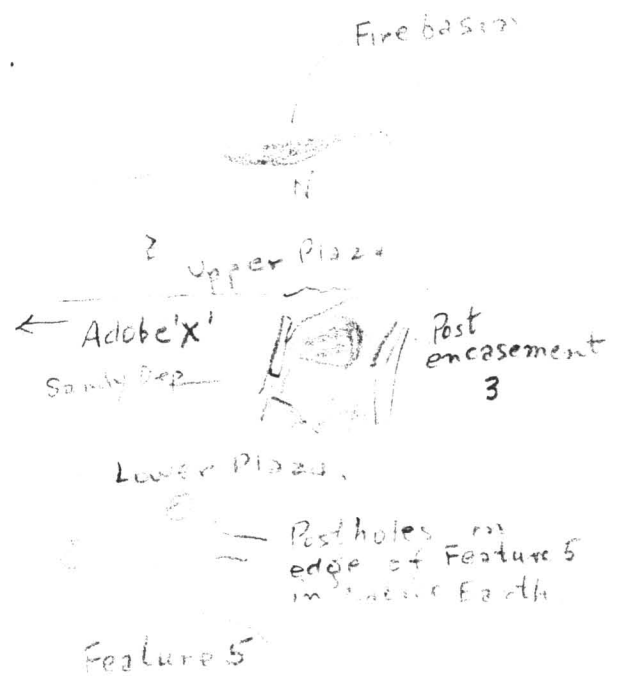 Fire basin
N
?
Upper Plaza
← Adobe 'X'
Post
encasement
3
Sandy Dep
Lower Plaza.
Postholes on
edge of Feature 5
in Earth
Feature 5